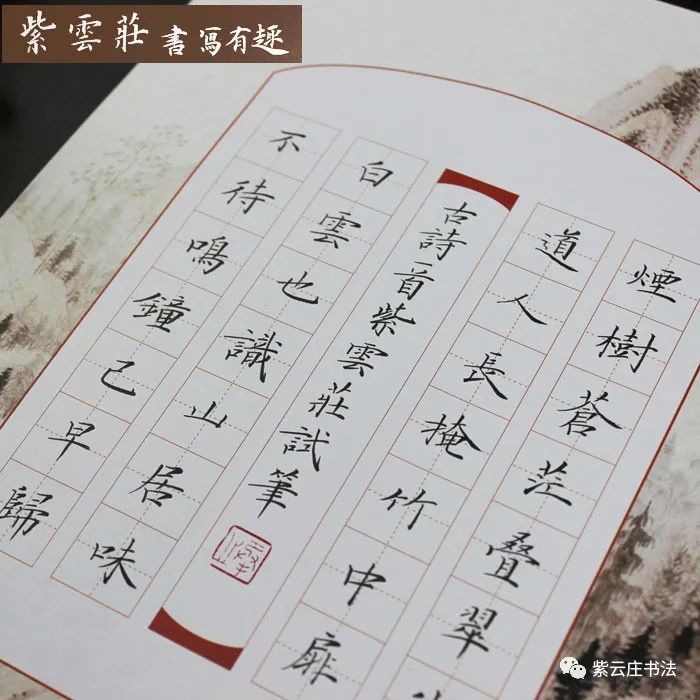 紫雲莊書寫有趣
煙樹蒼茫叠翠
道人長掩竹中扉
古詩一首紫雲莊試筆
白雲也識山居味
不待鳴鐘已早歸
紫云庄书法